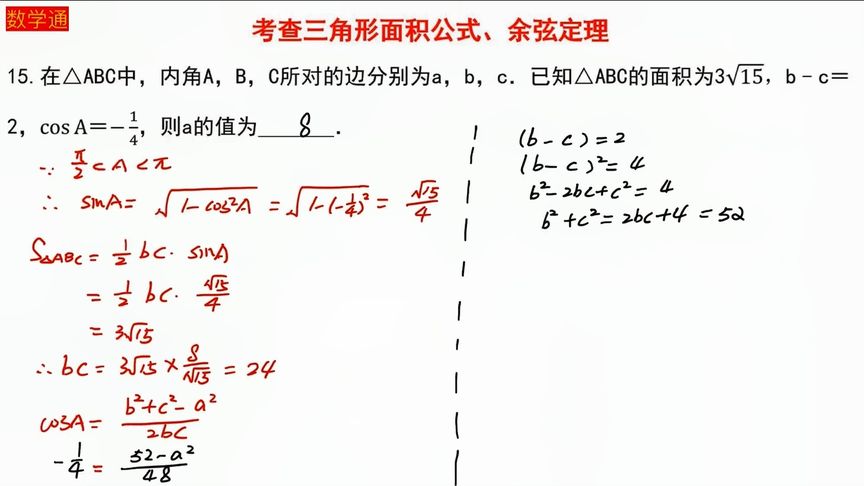 数学通
考查三角形面积公式、余弦定理
15. 在△ABC中，内角A，B，C所对的边分别为a，b，c．已知△ABC的面积为3√15，b－c＝
2，cos A＝－1/4，则a的值为 8 ．
∵ π/2 < A < π
∴ sinA = √(1-cos²A) = √(1-(-1/4)²) = √15/4
S△ABC = 1/2 bc · sinA
= 1/2 bc · √15/4
= 3√15
∴ bc = 3√15 × 8/√15 = 24
cosA = (b²+c²-a²)/2bc
-1/4 = (52-a²)/48
(b-c) = 2
(b-c)² = 4
b²-2bc+c² = 4
b²+c² = 2bc+4 = 52